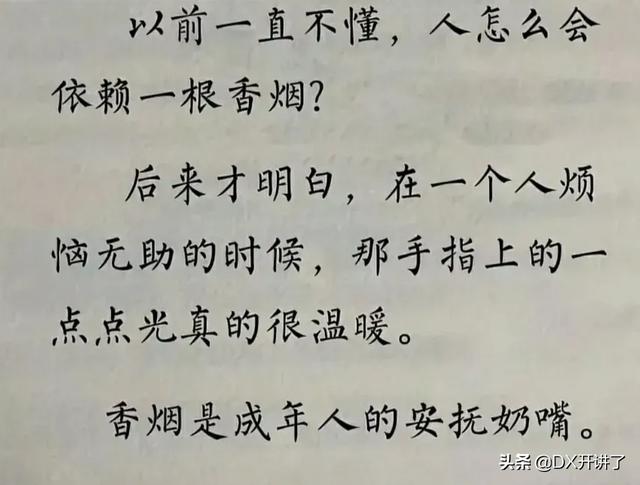 以前一直不懂，人怎么会
依赖一根香烟？
后来才明白，在一个人烦
恼无助的时候，那手指上的一
点点光真的很温暖。
香烟是成年人的安抚奶嘴。
头条 @DX开讲了